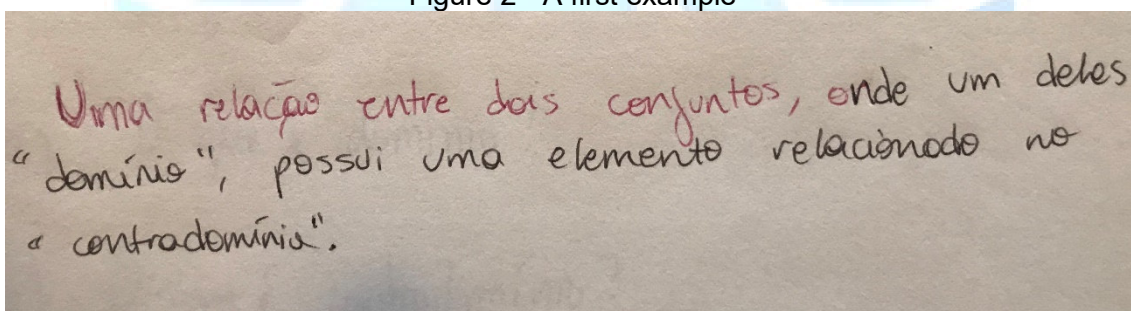 Figure 2 - A first example
Uma relação entre dois conjuntos, onde um deles
"domínio", possui uma elemento relacionado no
"contradomínio".